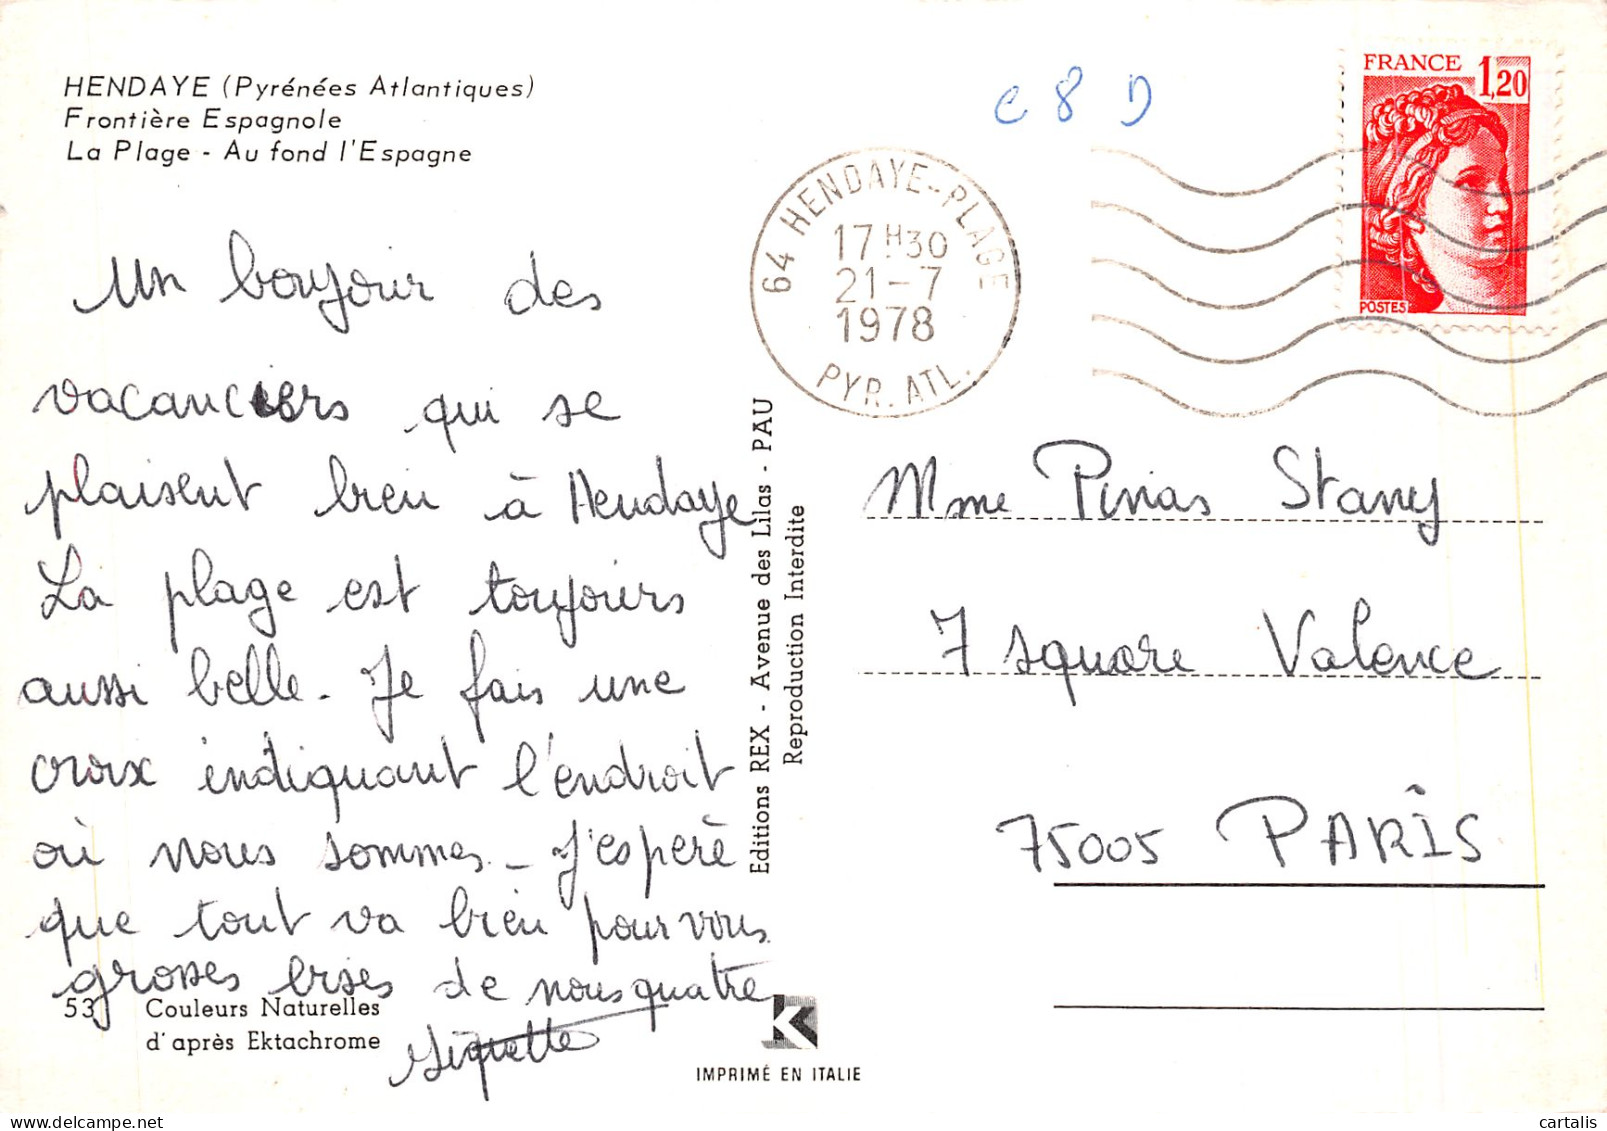 HENDAYE (Pyrénées Atlantiques)
Frontière Espagnole
La Plage - Au fond l'Espagne
Un bonjour des
vacanciers qui se
plaisent bien à Hendaye
La plage est toujours
aussi belle. Je fais une
croix indiquant l'endroit
où nous sommes - J'espère
que tout va bien pour vous
grosses bises de nous quatre
53 Couleurs Naturelles
d'après Ektachrome
Editions REX - Avenue des Lilas - PAU
Reproduction Interdite
IMPRIMÉ EN ITALIE
K
C 8 D
64 HENDAYE-PLAGE
17H30
21-7
1978
PYR. ATL.
FRANCE 1,20
POSTES
Mme Pinias Stany
7 square Valence
75005 PARIS
cartalis